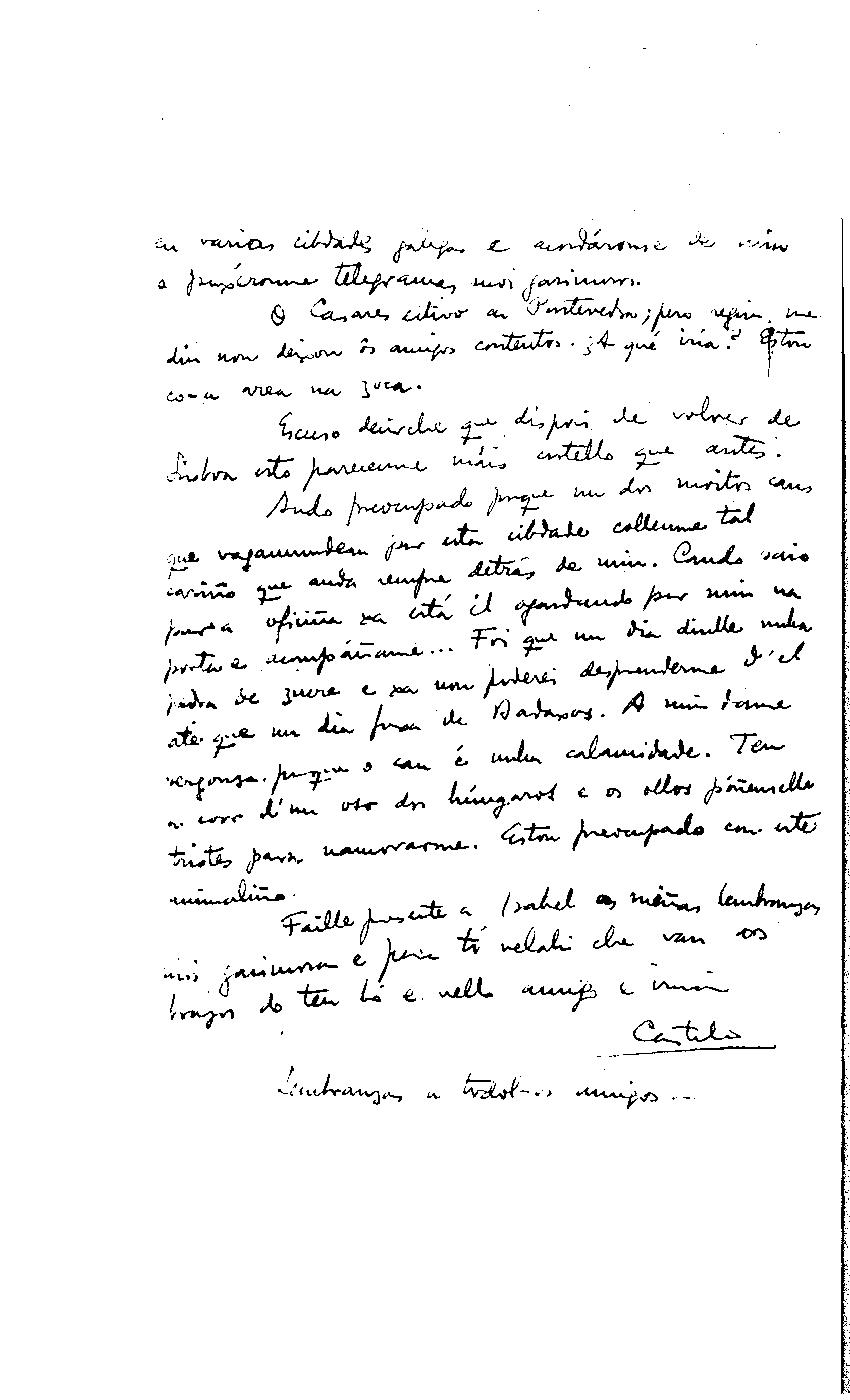 en varias cibdades galegas e acordáronse de min
e puxéronme telegramas moi garimosos.
O Casares estivo en Pontevedra; pero según me
din non deixou ôs amigos contentos. ¿A qué iría? Estou
co-a area na zoca.
Escuso decirche que dispois de volver de
Lisboa esto paréceme máis estreito que antes.
Ando preocupado porque un dos moitos cans
que vagamundean por esta cibdade colleume tal
cariño que anda sempre detrás de min. Cando saio
para a oficina xa está él agardando por min na
porta e acompáñame... Foi que un dia dinlle unha
pedra de zucre e xa non poderei desprenderme d'el
ate que un dia fuxa de Badaxoz. A min dame
vergonza porque o can é unha calamidade. Ten
a cara d'un oso dos húngaros e os ollos póñenselle
tristes para namorarme. Estou preocupado con este
animaliño.
Faille presente a Isabel as miñas lembranzas
mais garimosas e para tí velahi che van os
brazos do teu bó e vello amigo e irmán
Castelao
Lembranzas a todol-os amigos.--